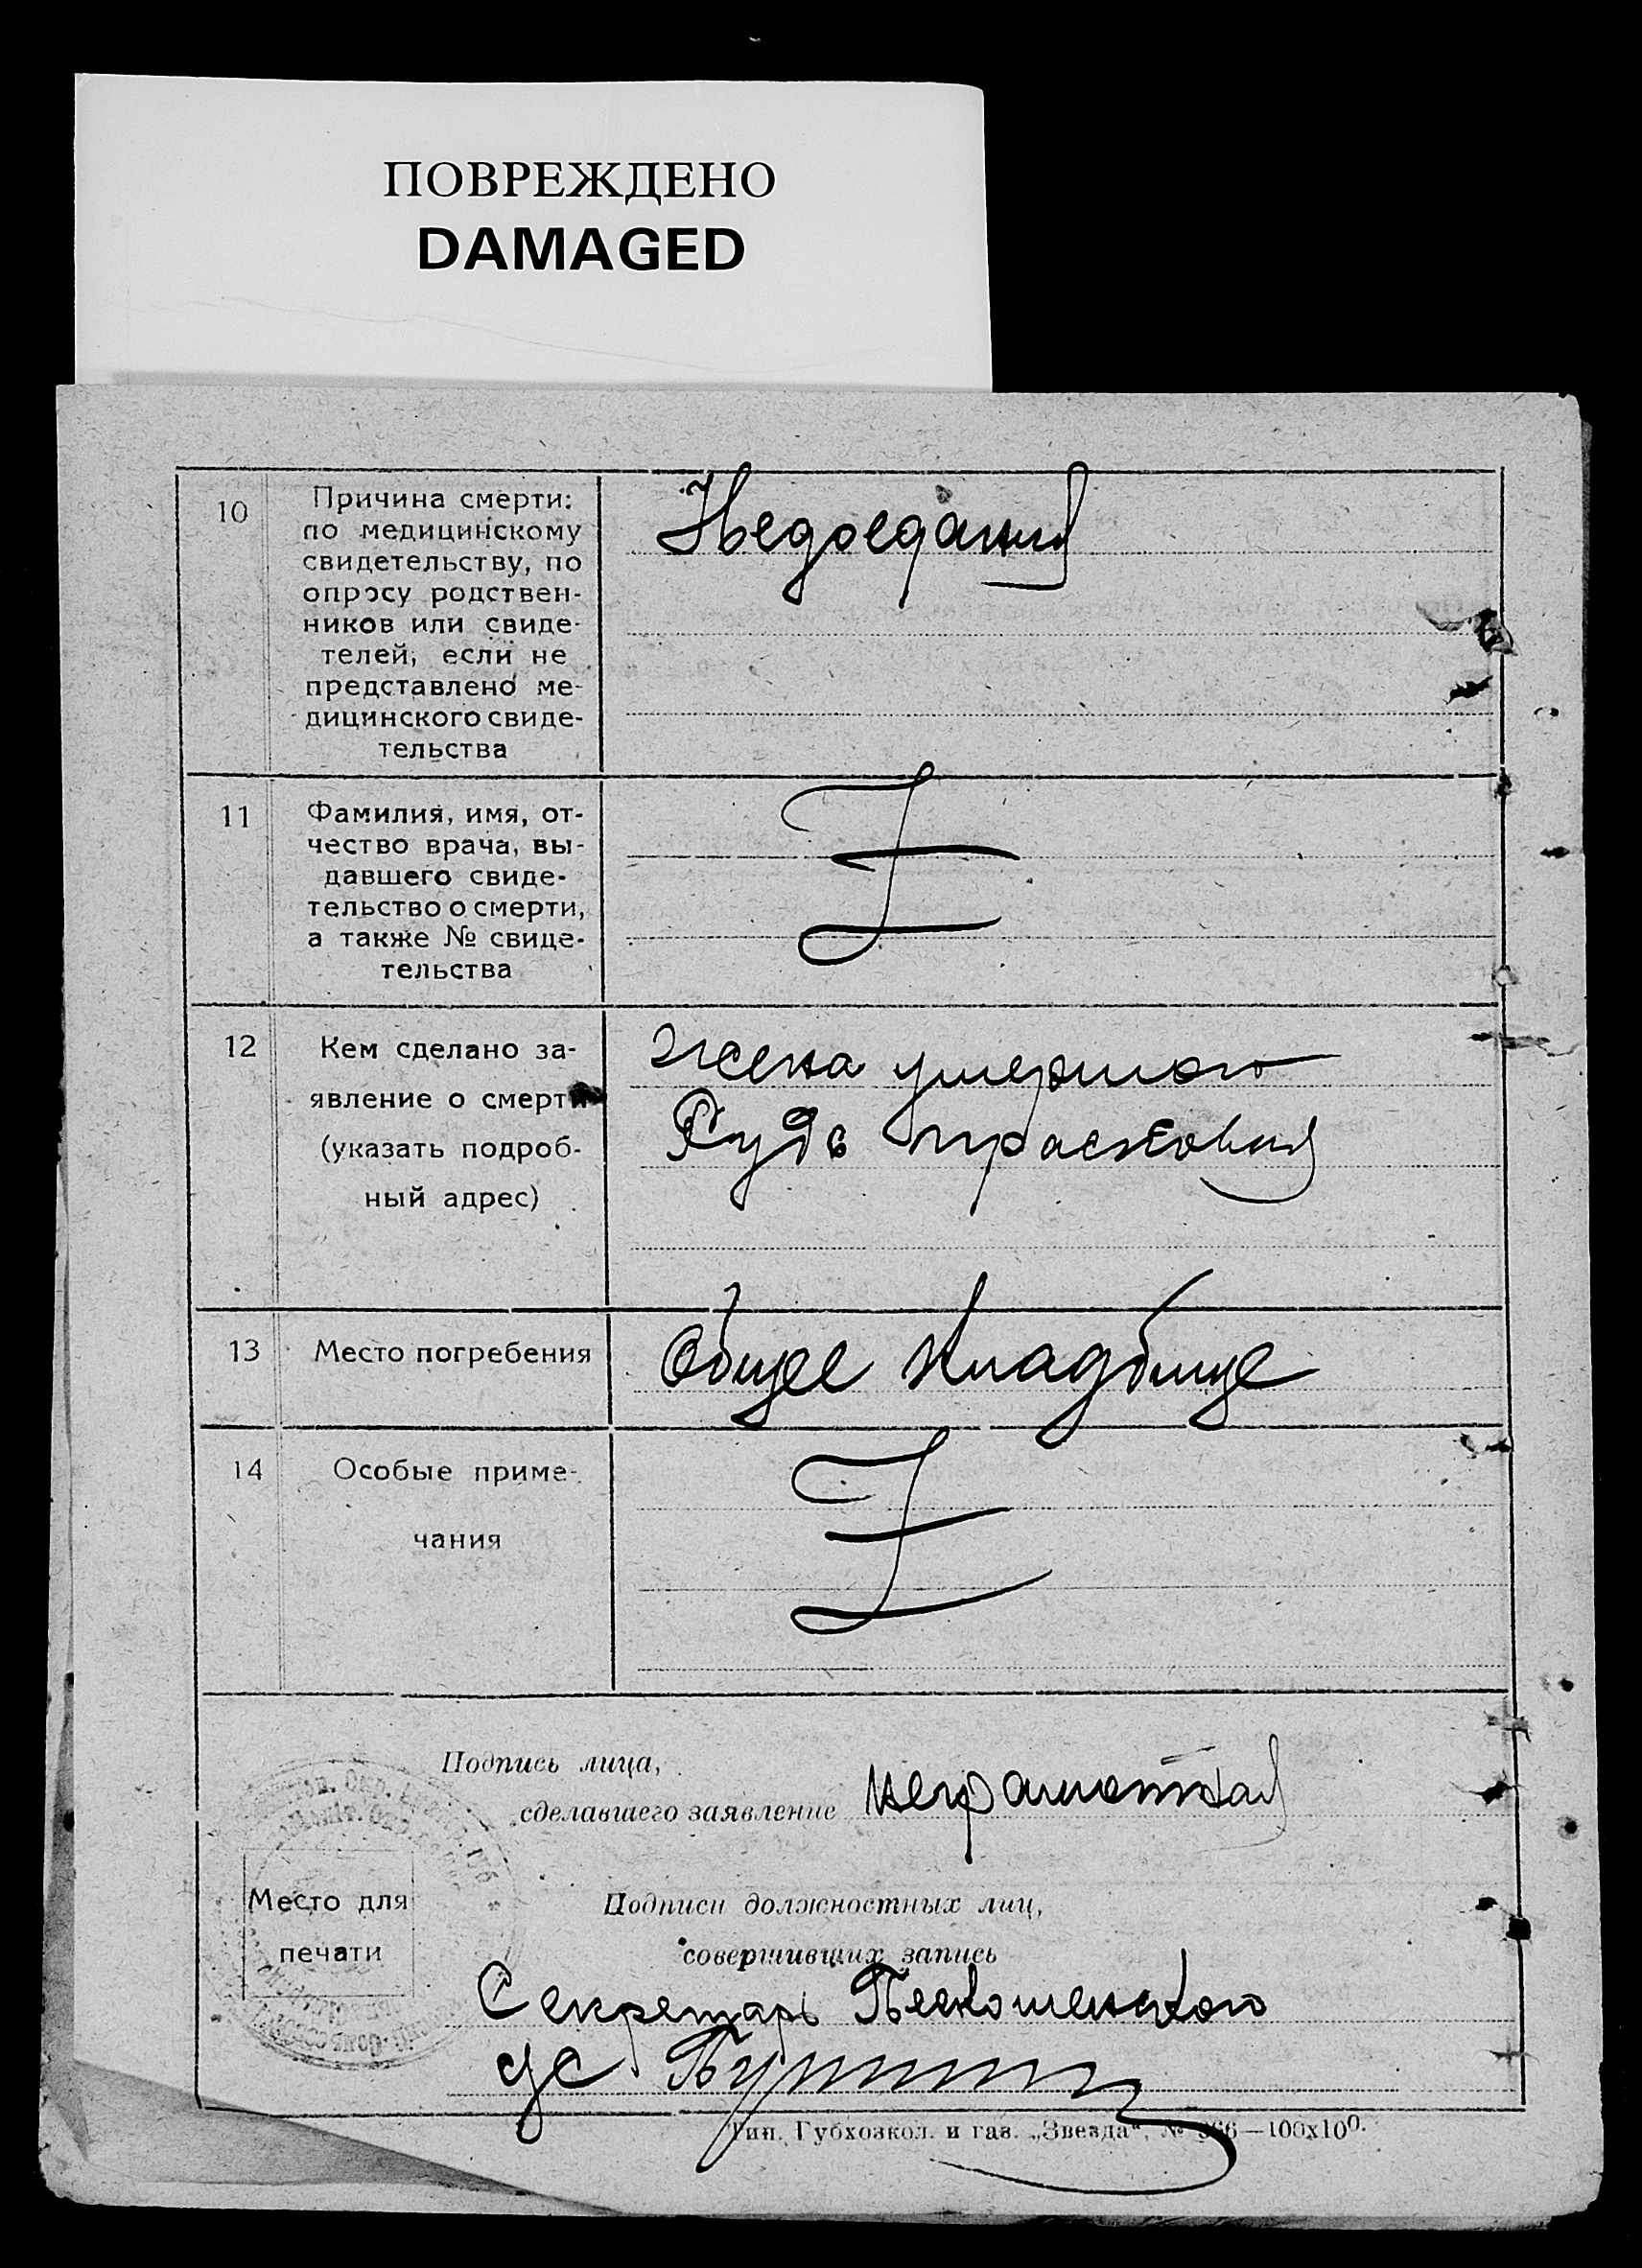 ПОВРЕЖДЕНО
DAMAGED
10
Причина смерти:
по медицинскому
свидетельству, по
опросу родствен-
ников или свиде-
телей, если не
представлено ме-
дицинского свиде-
тельства
Недоедания
11
Фамилия, имя, от-
чество врача, вы-
давшего свиде-
тельство о смерти,
а также № свиде-
тельства
12
Кем сделано за-
явление о смерти
(указать подроб-
ный адрес)
жена умершого
Рудь Прасковия
13
Место погребения
Общее кладбище
14
Особые приме-
чания
Подпись лица,
сделавшего заявление
неграмотная
Место для
печати
Подписи должностных лиц,
совершивших запись
Секретарь
с/с
Тип. Губхозкол. и газ. „Звезда“, № —100х100.